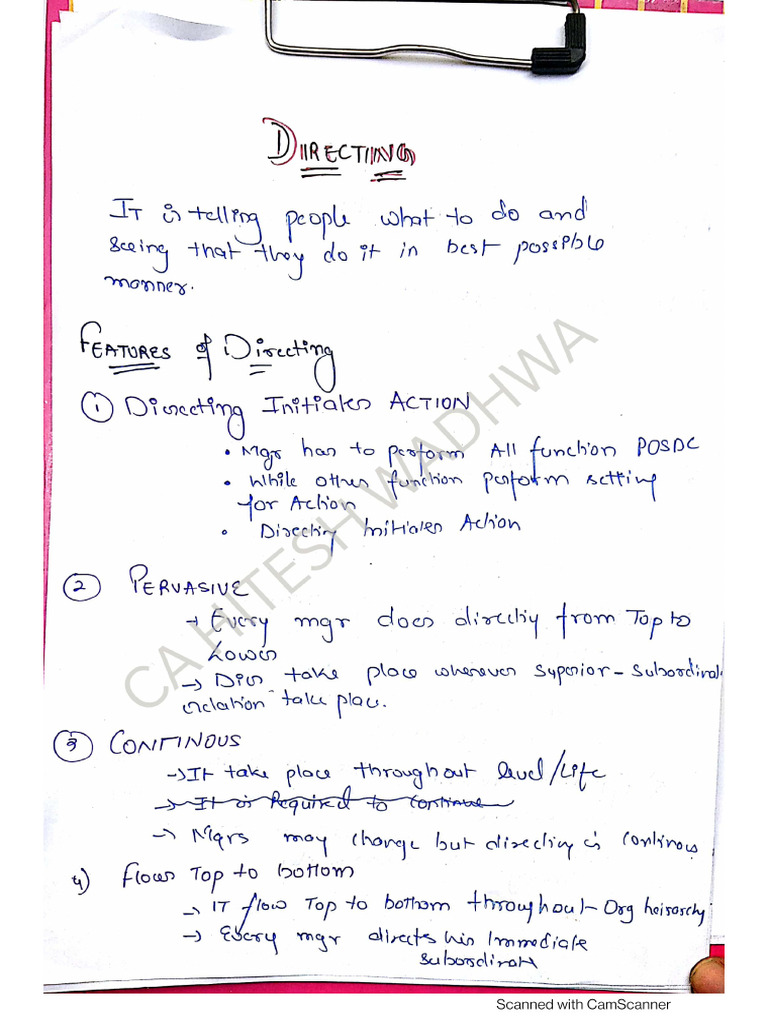 DIRECTING
IT is telling people what to do and
seeing that they do it in best possible
manner.
FEATURES of Directing
① Directing Initiates ACTION
• Mgr has to perform All function POSDC
• While other function perform setting
for Action
• Directing Initiates Action
② PERVASIVE
→ Every mgr does directing from Top to
Lower
→ Dir take place wherever superior-subordinate
relation take place.
③ CONTINOUS
→ It take place throughout level/Life
→ It is Required to continue
→ Mgrs may change but directing is continous
4) flows Top to bottom
→ IT flow Top to bottom throughout Org heirarchy
→ Every mgr directs his Immediate
subordinate
CA HITESH WADHWA
Scanned with CamScanner